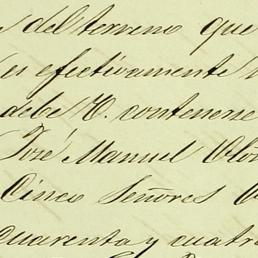 del terreno que
es efectivamente
debe V. contenerse
José Manuel
Cinco Señores
cuarenta y cuatro